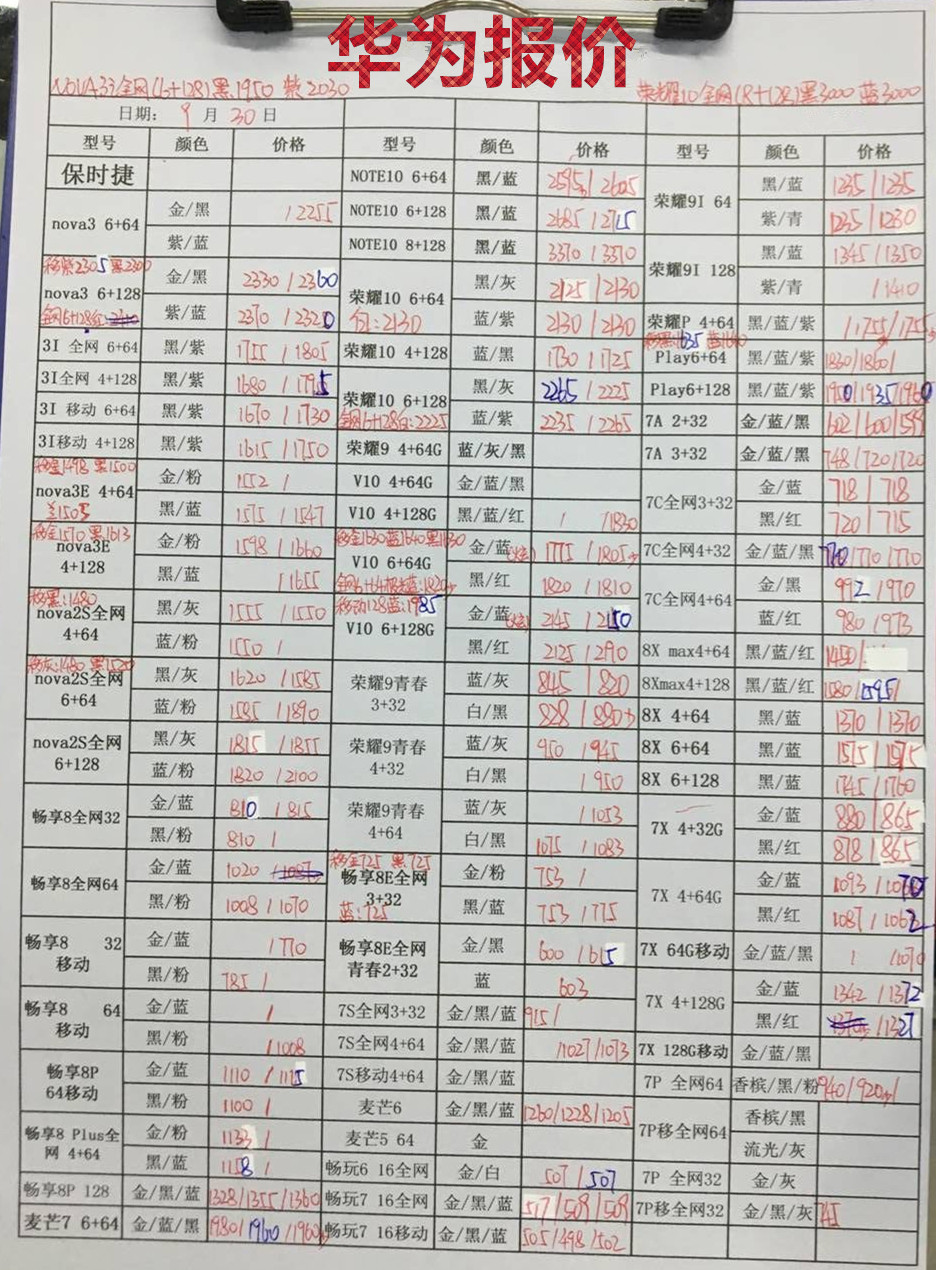 华为报价
NOVA3i全网(6+128)黑1950 紫2030
荣耀10全网(8+128)黑3000 蓝3000
日期: 9月30日
型号 颜色 价格 型号 颜色 价格 型号 颜色 价格
保时捷
NOTE10 6+64 黑/蓝 2595/2605
荣耀9I 64 黑/蓝 1235/1235
nova3 6+64 金/黑 /2255
NOTE10 6+128 黑/蓝 2685/2715
紫/青 1235/1230
紫/蓝
NOTE10 8+128 黑/蓝 3370/3370
荣耀9I 128 黑/蓝 1345/1350
移紫2305 黑2300
nova3 6+128 金/黑 2330/2360
荣耀10 6+64 黑/灰 2125/2130
紫/青 /1410
紫/蓝 2370/2320
粉:2130 蓝/紫 2130/2130
荣耀P 4+64 黑/蓝/紫 /1755/1755
3I 全网 6+64 黑/紫 1755/1805
荣耀10 4+128 蓝/黑 1730/1725
移黑1635 蓝1640
Play6+64 黑/蓝/紫 1830/1860/
3I全网 4+128 黑/紫 1680/1795
荣耀10 6+128 黑/灰 2265/2225
Play6+128 黑/蓝/紫 1950/1935/1960
3I 移动 6+64 黑/紫 1670/1730
全网6+128粉:2225 蓝/紫 2235/2265
7A 2+32 金/蓝/黑 602/600/599
3I移动 4+128 黑/紫 1615/1750
荣耀9 4+64G 蓝/灰/黑
7A 3+32 金/蓝/黑 748/720/720
移金1498 黑1500
nova3E 4+64 金/粉 1552/
兰1505
V10 4+64G 金/蓝/黑
7C全网3+32 金/蓝 718/718
黑/蓝 1575/1547
V10 4+128G 黑/蓝/红 / /1830
黑/红 720/715
移金1570 黑1613
nova3E 4+128 金/粉 1598/1660
移金1630蓝1640黑1630
V10 6+64G 金/蓝 1775/1805
7C全网4+32 金/蓝/黑 770/770
黑/蓝 /1655
黑/红 1820/1810
7C全网4+64 金/黑 992/970
移黑:1480
nova2S全网 4+64 黑/灰 1555/1550
移动128蓝:1985
V10 6+128G 金/蓝 2145/2150
蓝/红 980/973
蓝/粉 1550/
黑/红 2125/2290
8X max4+64 黑/蓝/红 1450/
移灰:1480 黑1520
nova2S全网 6+64 黑/灰 1620/1585
荣耀9青春 3+32 蓝/灰 845/820
8Xmax4+128 黑/蓝/红 1580/1595/
蓝/粉 1585/1890
白/黑 828/880
8X 4+64 黑/蓝 1370/1370
nova2S全网 6+128 黑/灰 1815/1855
荣耀9青春 4+32 蓝/灰 950/945
8X 6+64 黑/蓝 1575/1575
蓝/粉 1820/2100
白/黑 /950
8X 6+128 黑/蓝 1745/1760
畅享8全网32 金/蓝 810/815
荣耀9青春 4+64 蓝/灰 /1053
7X 4+32G 金/蓝 880/865
黑/粉 810/
白/黑 1075/1083
黑/红 878/865
畅享8全网64 金/蓝 1020
移金725 黑725
畅享8E全网 3+32 金/粉 753/
7X 4+64G 金/蓝 1093
黑/粉 1008/1070
蓝:725 黑/蓝 753/775
黑/红 1087/1062
畅享8 32 移动 金/蓝 /770
畅享8E全网 青春2+32 金/黑 600/615
7X 64G移动 金/蓝/黑 / /1070
黑/粉 785/
蓝 603
7X 4+128G 金/蓝 1342/1372
畅享8 64 移动 金/蓝 /
7S全网3+32 金/黑/蓝 915/
黑/红 /1327
黑/粉 /1008
7S全网4+64 金/黑/蓝 /1027/1073
7X 128G移动 金/蓝/黑
畅享8P 64移动 金/蓝 1110/1115
7S移动4+64 金/黑/蓝
7P 全网64 香槟/黑/粉 940/920/
黑/粉 1100/
麦芒6 金/黑/蓝 1260/1228/1205
7P移全网64 香槟/黑
畅享8 Plus全网 4+64 金/粉 1133/
麦芒5 64 金
流光/灰
黑/蓝 1158/
畅玩6 16全网 金/白 507/507
7P 全网32 金/灰
畅享8P 128 金/黑/蓝 1328/1355/1360
畅玩7 16全网 金/黑/蓝 517/509/509
7P移全网32 金/黑/灰 745
麦芒7 6+64 金/蓝/黑 1980/1960/1960
畅玩7 16移动 金/黑/蓝 505/498/502